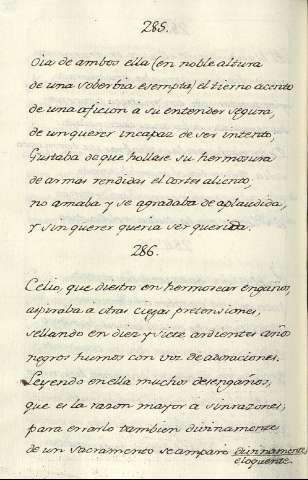 285.
Oia de ambos ella (en noble altura
de una soberbia esempta) el tierno acento
de una aficion á su entender segura,
de un querer incapaz de ser intento,
Gustaba de que hollase su hermosura
de armas rendidas el cortes aliento,
no amaba y se agradaba de aplaudida,
y sin querer queria ser querida.
286.
Celio, que diestro en hermosear engaños,
aspiraba a otras ciegas pretensiones,
sellando en diez y siete ardientes años
negros humos con voz de adoraciones.
Leyendo en ella muchos desengaños,
que es la razon mayor a sinrazones,
para errarlo tambien divinamente
de un sacramento se amparó divinamente
eloquente.